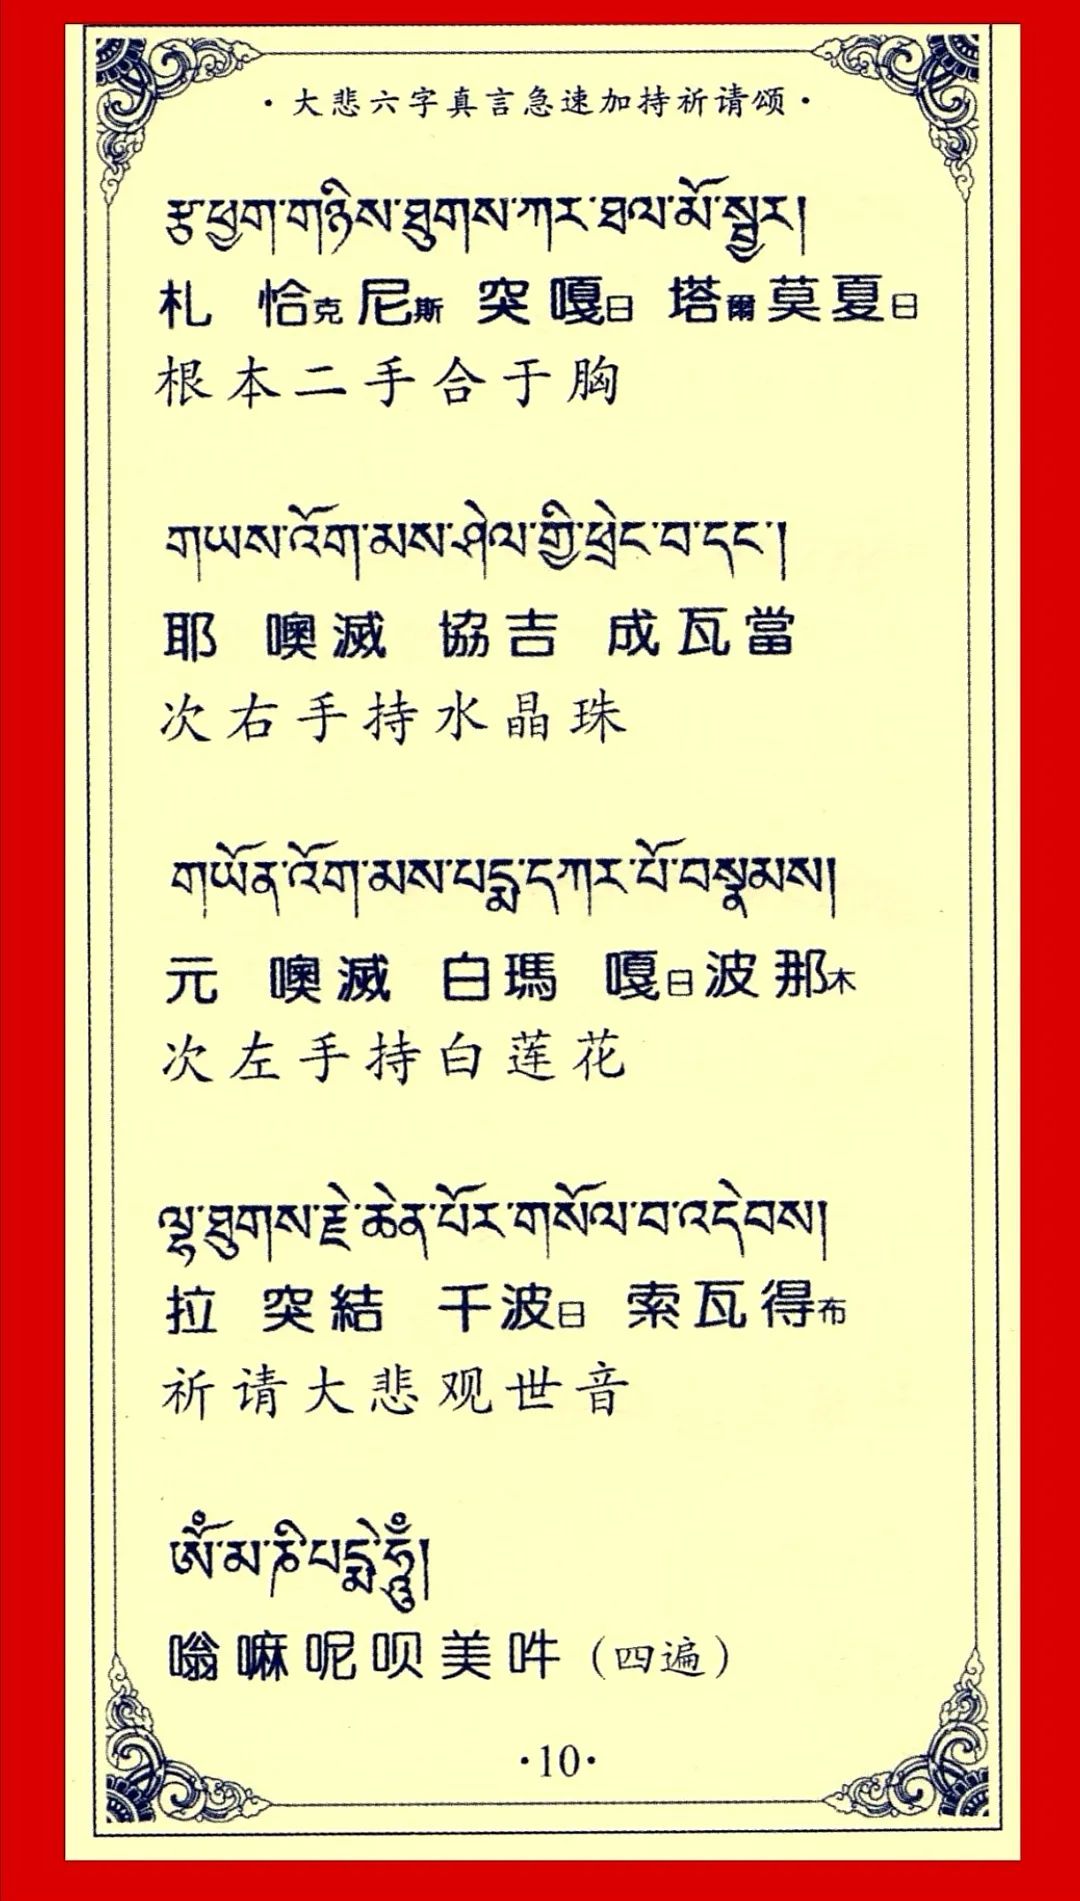 ·大悲六字真言急速加持祈请颂·
རྩ་ཕྱག་གཉིས་ཐུགས་ཀར་ཐལ་མོ་སྦྱར།
札 恰克尼斯 突嘎日 塔爾莫夏日
根本二手合于胸
གཡས་འོག་མས་ཤེལ་གྱི་ཕྲེང་བ་དང་།
耶 噢滅 協吉 成瓦當
次右手持水晶珠
གཡོན་འོག་མས་པདྨ་དཀར་པོ་བསྣམས།
元 噢滅 白瑪 嘎日波那木
次左手持白莲花
ལྷ་ཐུགས་རྗེ་ཆེན་པོར་གསོལ་བ་འདེབས།
拉 突結 千波日 索瓦得布
祈请大悲观世音
ཨོཾ་མ་ཎི་པདྨེ་ཧཱུྃ།
嗡嘛呢呗美吽（四遍）
·10·